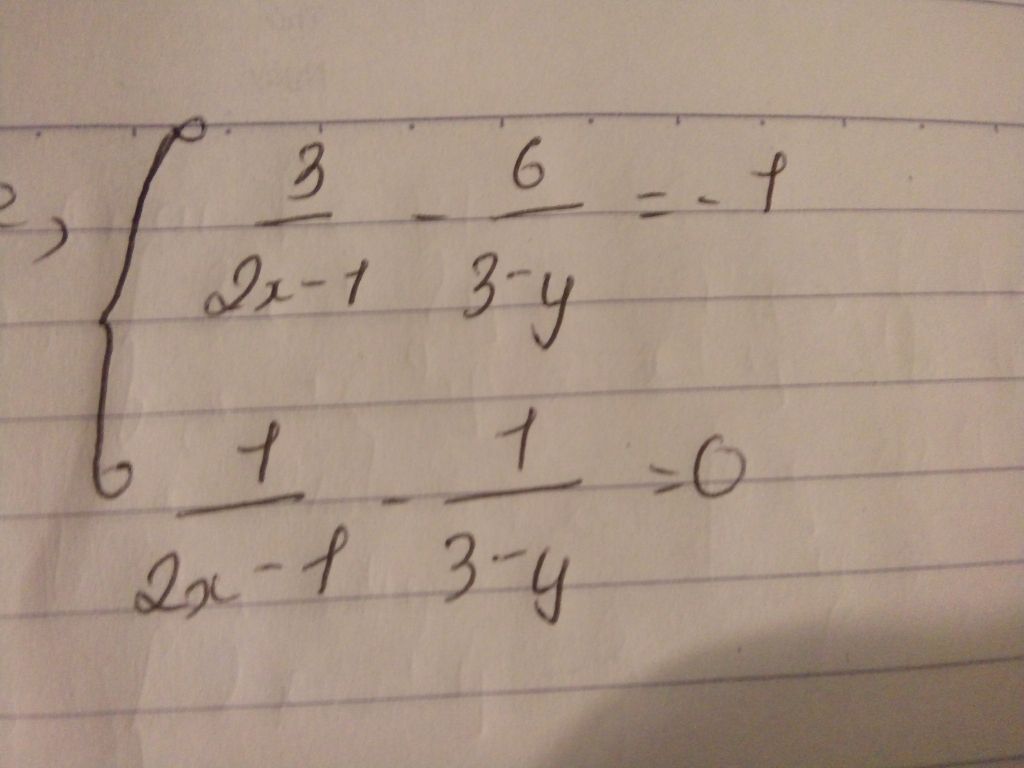 2, { 3/(2x-1) - 6/(3-y) = -1
1/(2x-1) - 1/(3-y) = 0